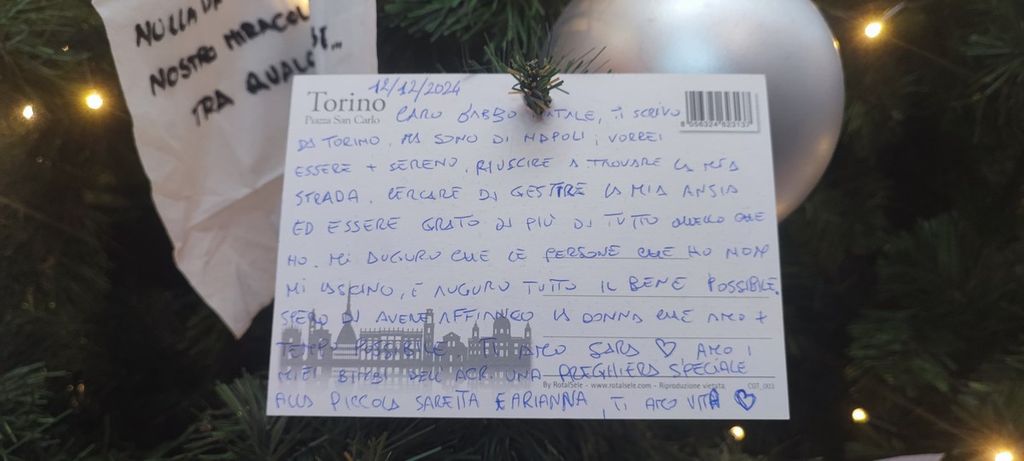 NULLA DA
NOSTRO MIRACOL
TRA QUALC
12/12/2024
Torino
Piazza San Carlo
8 056324 523137
CARO BABBO NATALE, TI SCRIVO
DA TORINO, MA SONO DI NAPOLI, VORREI
ESSERE + SERENO, RIUSCIRE A TROVARE LA MIA
STRADA. CERCARE DI GESTIRE LA MIA ANSIA
ED ESSERE GRATO DI PIÙ DI TUTTO QUELLO CHE
HO. MI AUGURO CHE LE PERSONE CHE HO NON
MI LASCINO, E AUGURO TUTTO IL BENE POSSIBILE.
SPERO DI AVERE AFFIANCO LA DONNA CHE AMO +
TEMPO POSSIBILE. TI AMO SARA ♡, AMO I
MIEI BIMBI DELL'ACR. UNA PREGHIERA SPECIALE
By RotalSele - www.rotalsele.com - Riproduzione vietata CGT_003
ALLA PICCOLA SARETTA E ARIANNA, TI AMO VITA ♡